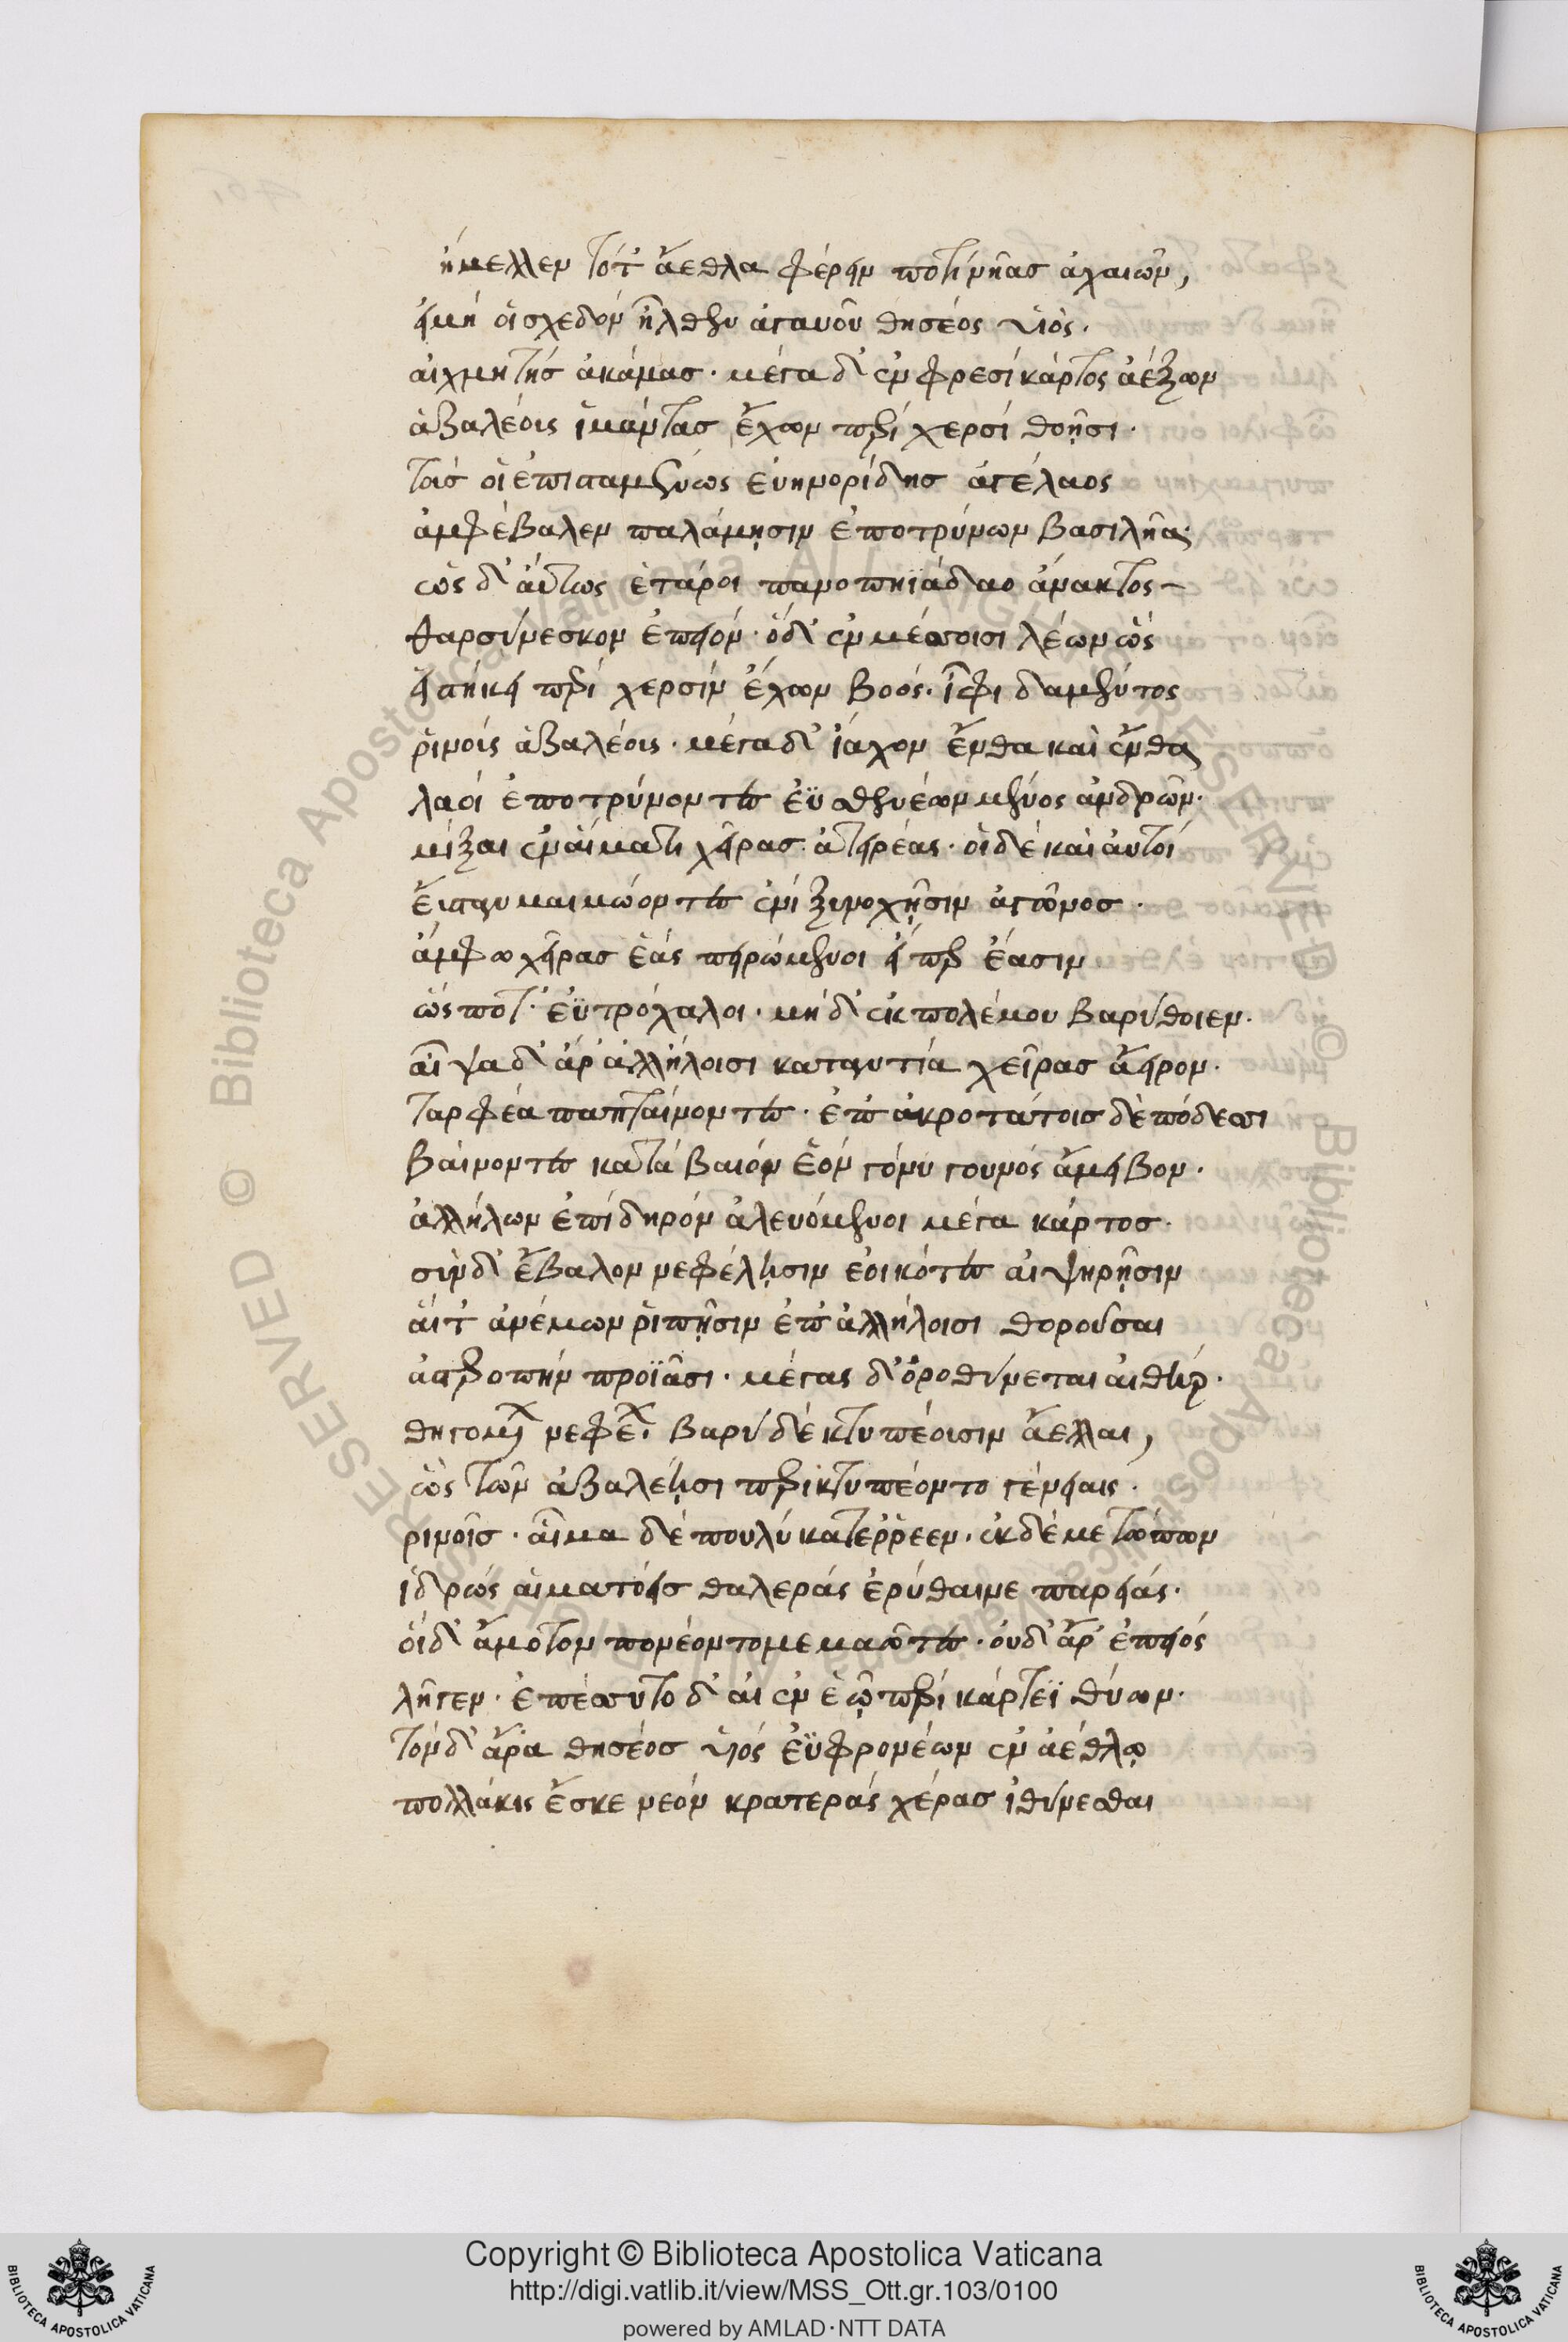 ἤμελλεν τότ' ἄεθλα φέρειν ποτὶ νῆας ἀχαιῶν,
εἰ μή οἱ σχεδὸν ἦλθεν ἀγαυοῦ θησέος υἱός.
αἰχμητής ἀκάμας. μέγα δ' ἐν φρεσί κάρτος ἀέξων
ἀζαλέοις ἱμάντας ἔχων περί χερσί θοῇσι.
τάς οἱ ἐπισταμένως εὐηνορίδης ἀγέλαος
ἀμφέβαλεν παλάμῃσιν ἐποτρύνων βασιλῆα.
ὣς δ' αὔτως ἑτάροι πανοπηϊάδαο ἄνακτος
θαρσύνεσκον ἐπειόν. ὁ δ' ἐν μέσσοισι λέων ὣς
εἱστήκει περί χερσίν ἔχων βοός. ἶφι δαμέντος
ῥινοίς ἀζαλέοις. μέγα δ' ἴαχον ἔνθα καὶ ἔνθα
λαοί ἐποτρύνοντες ἐϋσθενέων μένος ἀνδρῶν.
μίξαι ἐν αἵματι χεῖρας ἀτειρέας. οἱ δέ καὶ αὐτοί
ἔσταν μαιμώοντες ἐνί ξυνοχῇσιν ἀγῶνος.
ἄμφω χεῖρας ἑάς πειρώμενοι εἴπερ ἔασιν
ὥς ποτ' ἐϋτρόχαλοι. μηδ' ἐκ πολέμου βαρύθοιεν.
αἶψα δ' ἄρ' ἀλλήλοισι καταντία χεῖρας ἄειρον.
ταρφέα παπταίνοντες. ἐπ' ἀκροτάτοις δὲ πόδεσσι
βαίνοντες κατά βαιόν ἑόν γόνυ γουνός ἄμειβον.
ἀλλήλων ἐπί δηρόν ἀλευόμενοι μέγα κάρτος.
σύν δ' ἔβαλον νεφέλῃσιν ἐοικότες αἰψηρῇσιν
αἵτ' ἀνέμων ῥιπῇσιν ἐπ' ἀλλήλοισι θοροῦσαι
ἀστεροπήν προϊᾶσι. μέγας δ' ὀροθύνεται αἰθήρ.
θηγομένων νεφέων. βαρύ δέ κτυπέοισιν ἄελλαι,
ὣς τῶν ἀζαλέῃσι περικτυπέοντο γένειαις.
ρινοῖς. αἷμα δέ πουλύ κατέρρεεν. ἐκ δέ μετώπων
ἱδρώς αἱματόεις θαλεράς ἐρύθαινε παρειάς.
οἱ δ' ἄμοτον πονέοντο μεμαῶτες. ὀυδ' ἄρ' ἐπειός
λῆγεν. ἐπέσσυτο δ' αἰὲν ἑῷ περί κάρτεϊ θύων.
τόν δ' ἄρα θησέος υἱός ἐϋφρονέων ἐν ἀέθλῳ
πολλάκις ἔσκε νεόν κρατεράς χέρας ἰθύνεσθαι
Copyright © Biblioteca Apostolica Vaticana
http://digi.vatlib.it/view/MSS_Ott.gr.103/0100
powered by AMLAD·NTT DATA